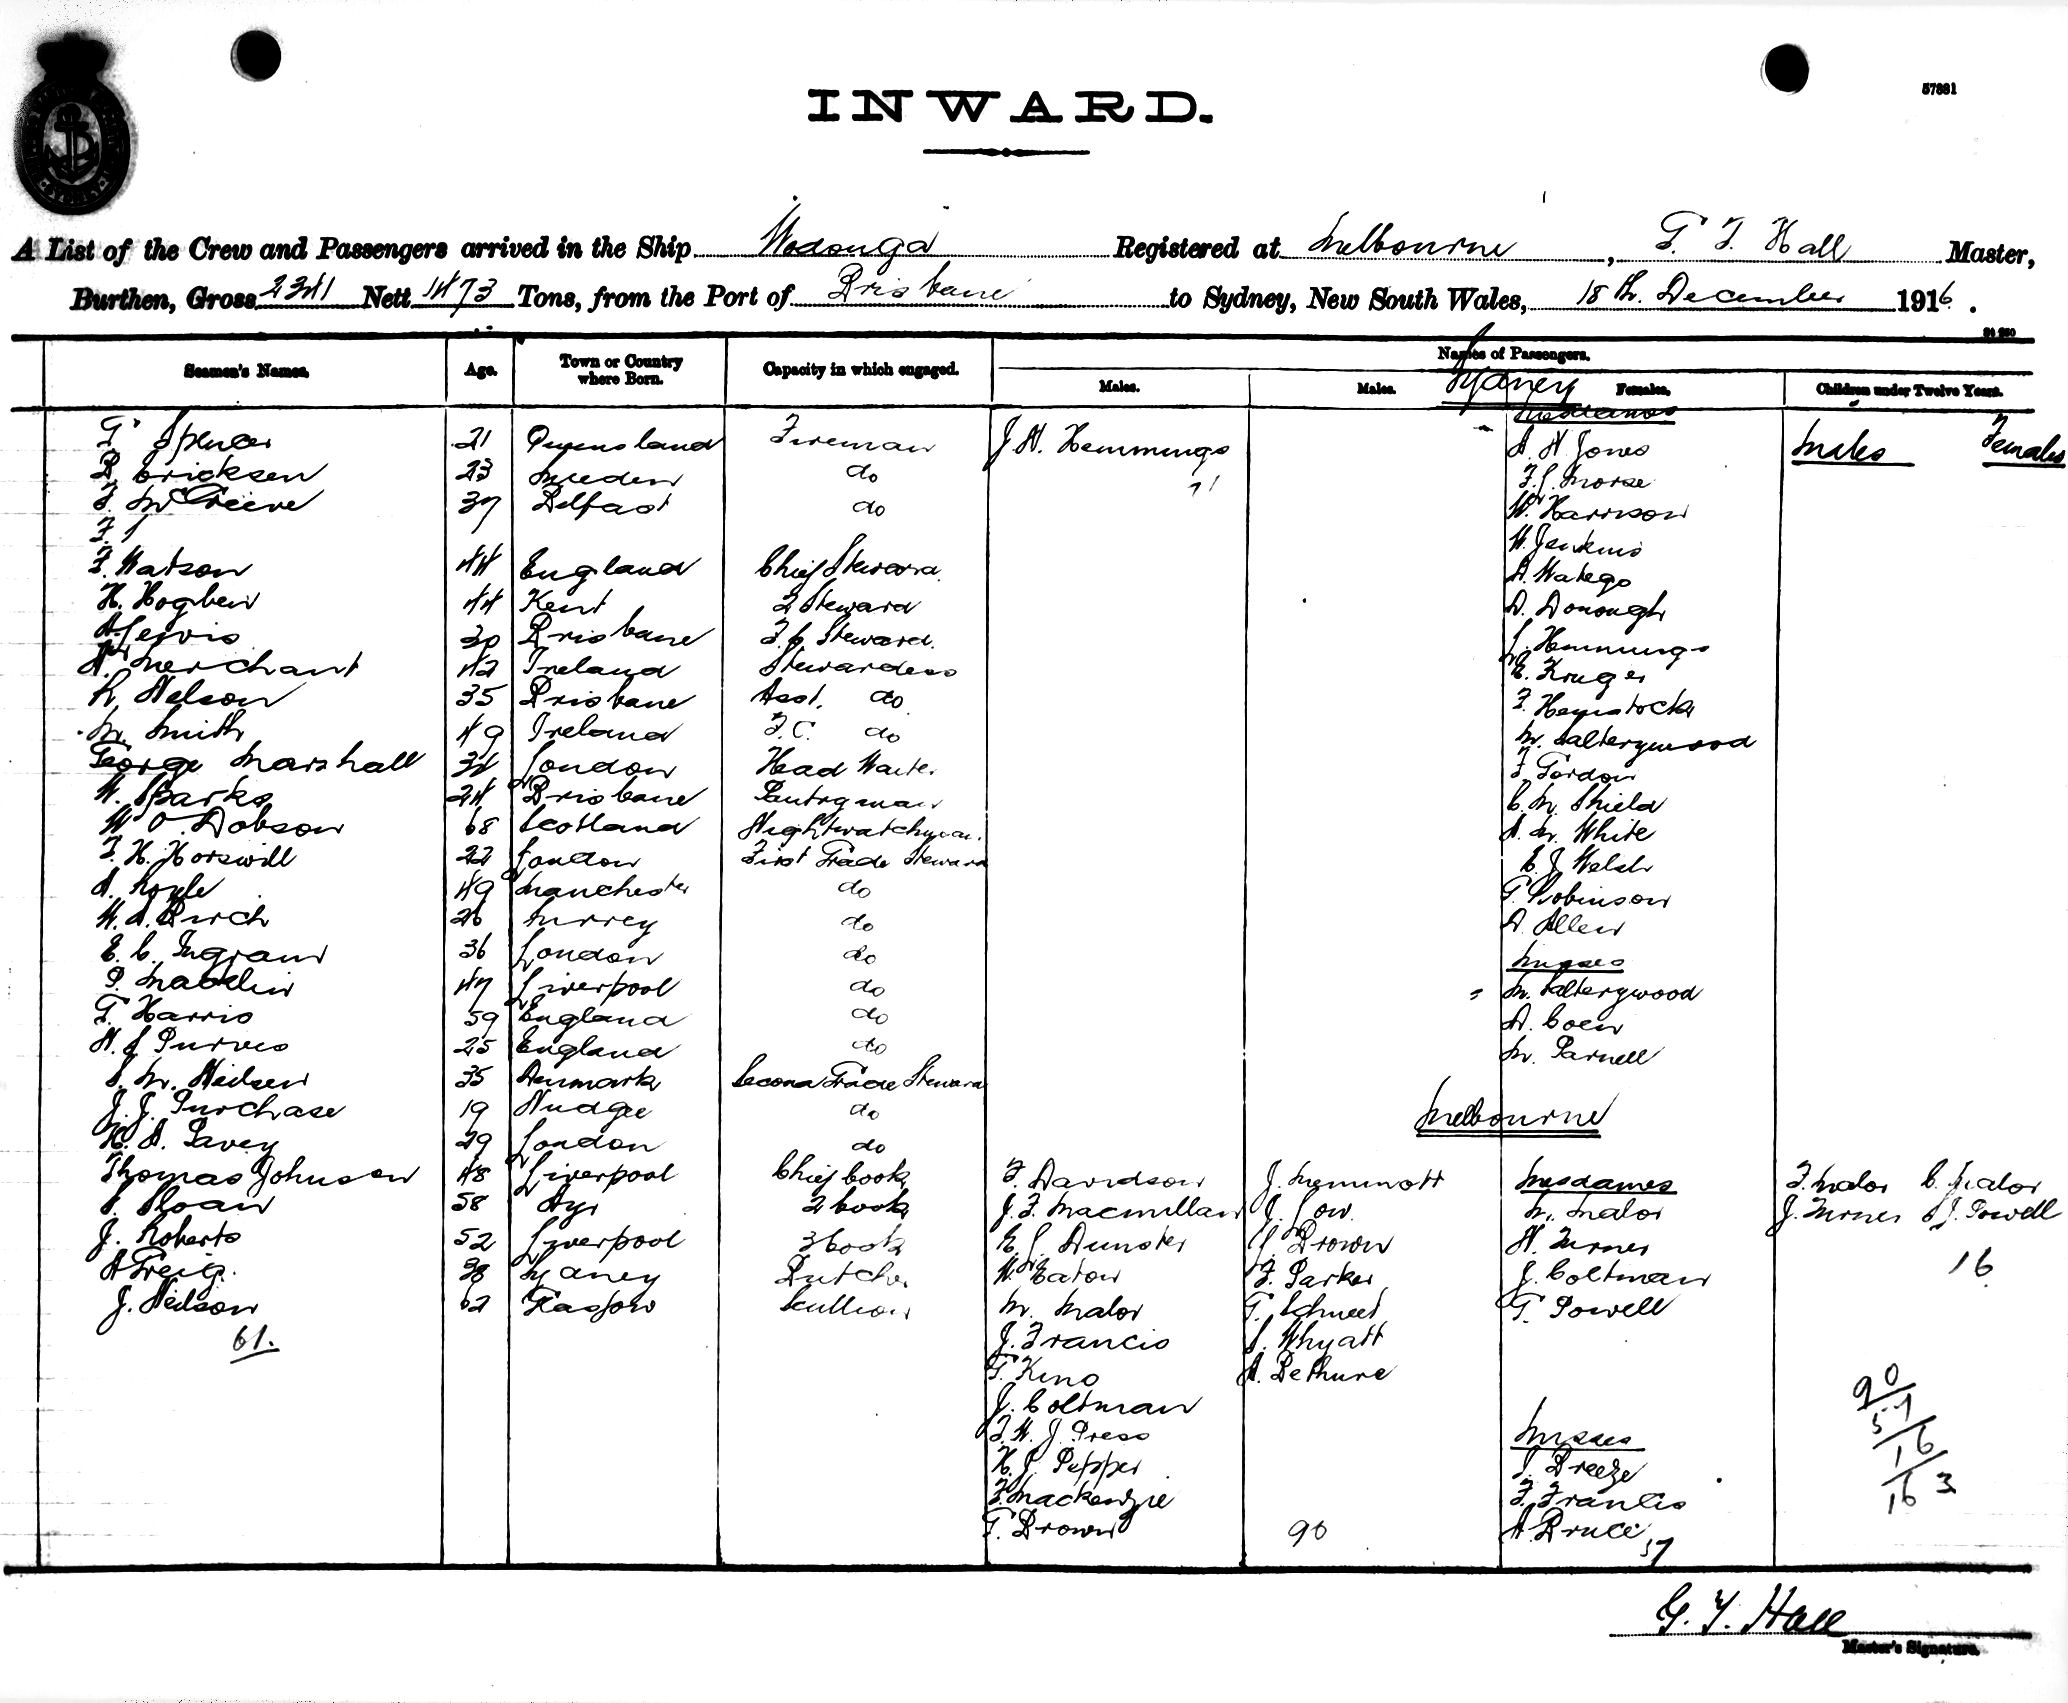 57881
INWARD.
A List of the Crew and Passengers arrived in the Ship Wodonga Registered at Melbourne, G. T. Hall Master,
Burthen, Gross 2341 Nett 1473 Tons, from the Port of Brisbane to Sydney, New South Wales, 18th December 1916.
Seamen's Names. Age. Town or Country where Born. Capacity in which engaged. Names of Passengers.
Males. Males. Females. Children under Twelve Years.
Sydney
Mesdames
Males Females
G Spencer 21 Queensland Fireman J. H. Hemmings A. H. Jones
B. Ericksen 23 Sweden do F. L. Morse
T. McGreeve 37 Belfast do W. Harrison
W. Jenkins
F. Watson 44 England Chief Steward A. Watego
H. Hogben 44 Kent 2 Steward D. Donough
A. Lewis 30 Brisbane F. C. Steward L. Hemmings
A. Merchant 42 Ireland Stewardess E. Kruger
R. Nelson 35 Brisbane Asst. do F. Haystock
M. Smith 49 Ireland F. C. do M. Saltergwood
George Marshall 34 London Head Waiter F. Gordon
W. Sparks 24 Brisbane Pantryman C. M. Shield
W O. Dobson 68 Scotland Nightwatchman A. M. White
F. H. Horswill 22 London First Grade Steward E. J. Welsh
A. Royle 49 Manchester do G. Robinson
W. A. Birch 26 Surrey do A. Allen
E. C. Ingram 36 London do Misses
P. 47 Liverpool do M. Saltergwood
G. Harris 59 England do A. Coen
H. L. Purves 25 England do M. Parnell
S. M. Neilsen 35 Denmark Second Grade Steward
J. J. Purchase 19 Nudgee do Melbourne
H. A. Pavey 29 London do
Thomas Johnson 48 Liverpool Chief Cook F. Davidson J. Memmott Mesdames F. Malor C. Malor
S. Sloan 58 Ayr 2 Cook J. F. Macmillan J. Low. M. Malor J. Turner J. Powell
J. Roberts 52 Liverpool 3 Cook E. L. Dunster J. Brown H. Turner 16
A Greig. 38 Sydney Butcher W. Eaton F. Parker J. Coltman
J. Neilson 62 Glasgow Scullion M. Malor G. Schmeet G. Powell
61. J. Francis S. Whyatt
G. King A. Bethune
J. Coltman
F. W. J. Press Misses
H. J. Pepper S. Breeze
F. Mackenzie F. Francis
G. Brown 90 A. Bruce
57
90
57
16
163
G. T. Hall
Master's Signature.